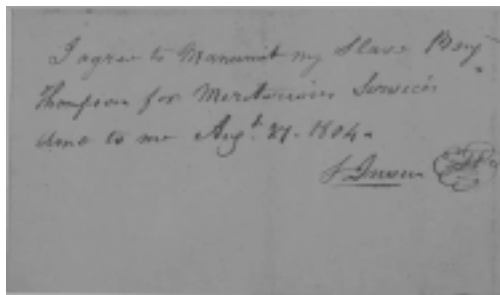 I agree to Manumit my Slave Benj
Thompson for Meritorious Services
done to me Augt. 27. 1804.